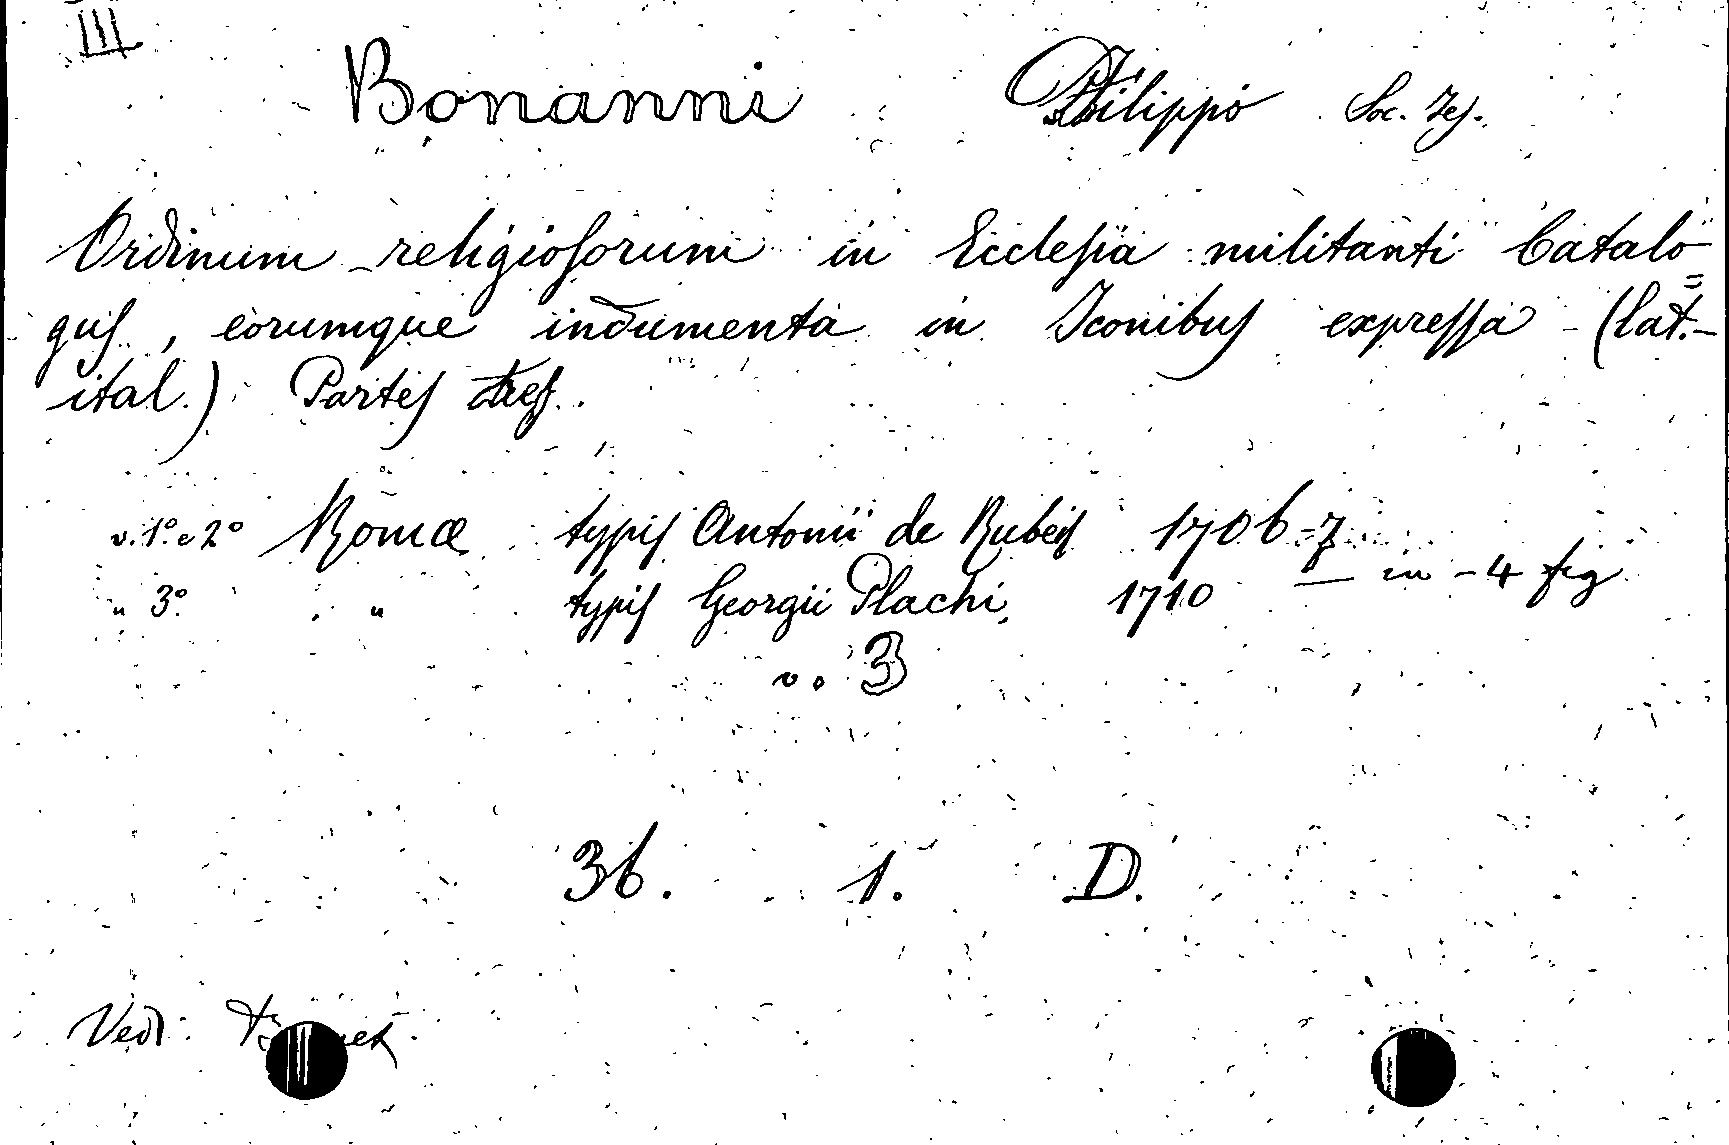 III
Bonanni Philippo Soc. Jes.
Ordinum religiosorum in Ecclesia militanti Catalo=
gus, eorumque indumenta in Iconibus expressa (lat.-
ital.) Partes tres.
v. 1.° e 2° Romæ typis Antonii de Rubeis 1706-7
" 3.° " typis Georgii Plachi, 1710 — in-4 fig
v. 3
36. 1. D.
Vedi